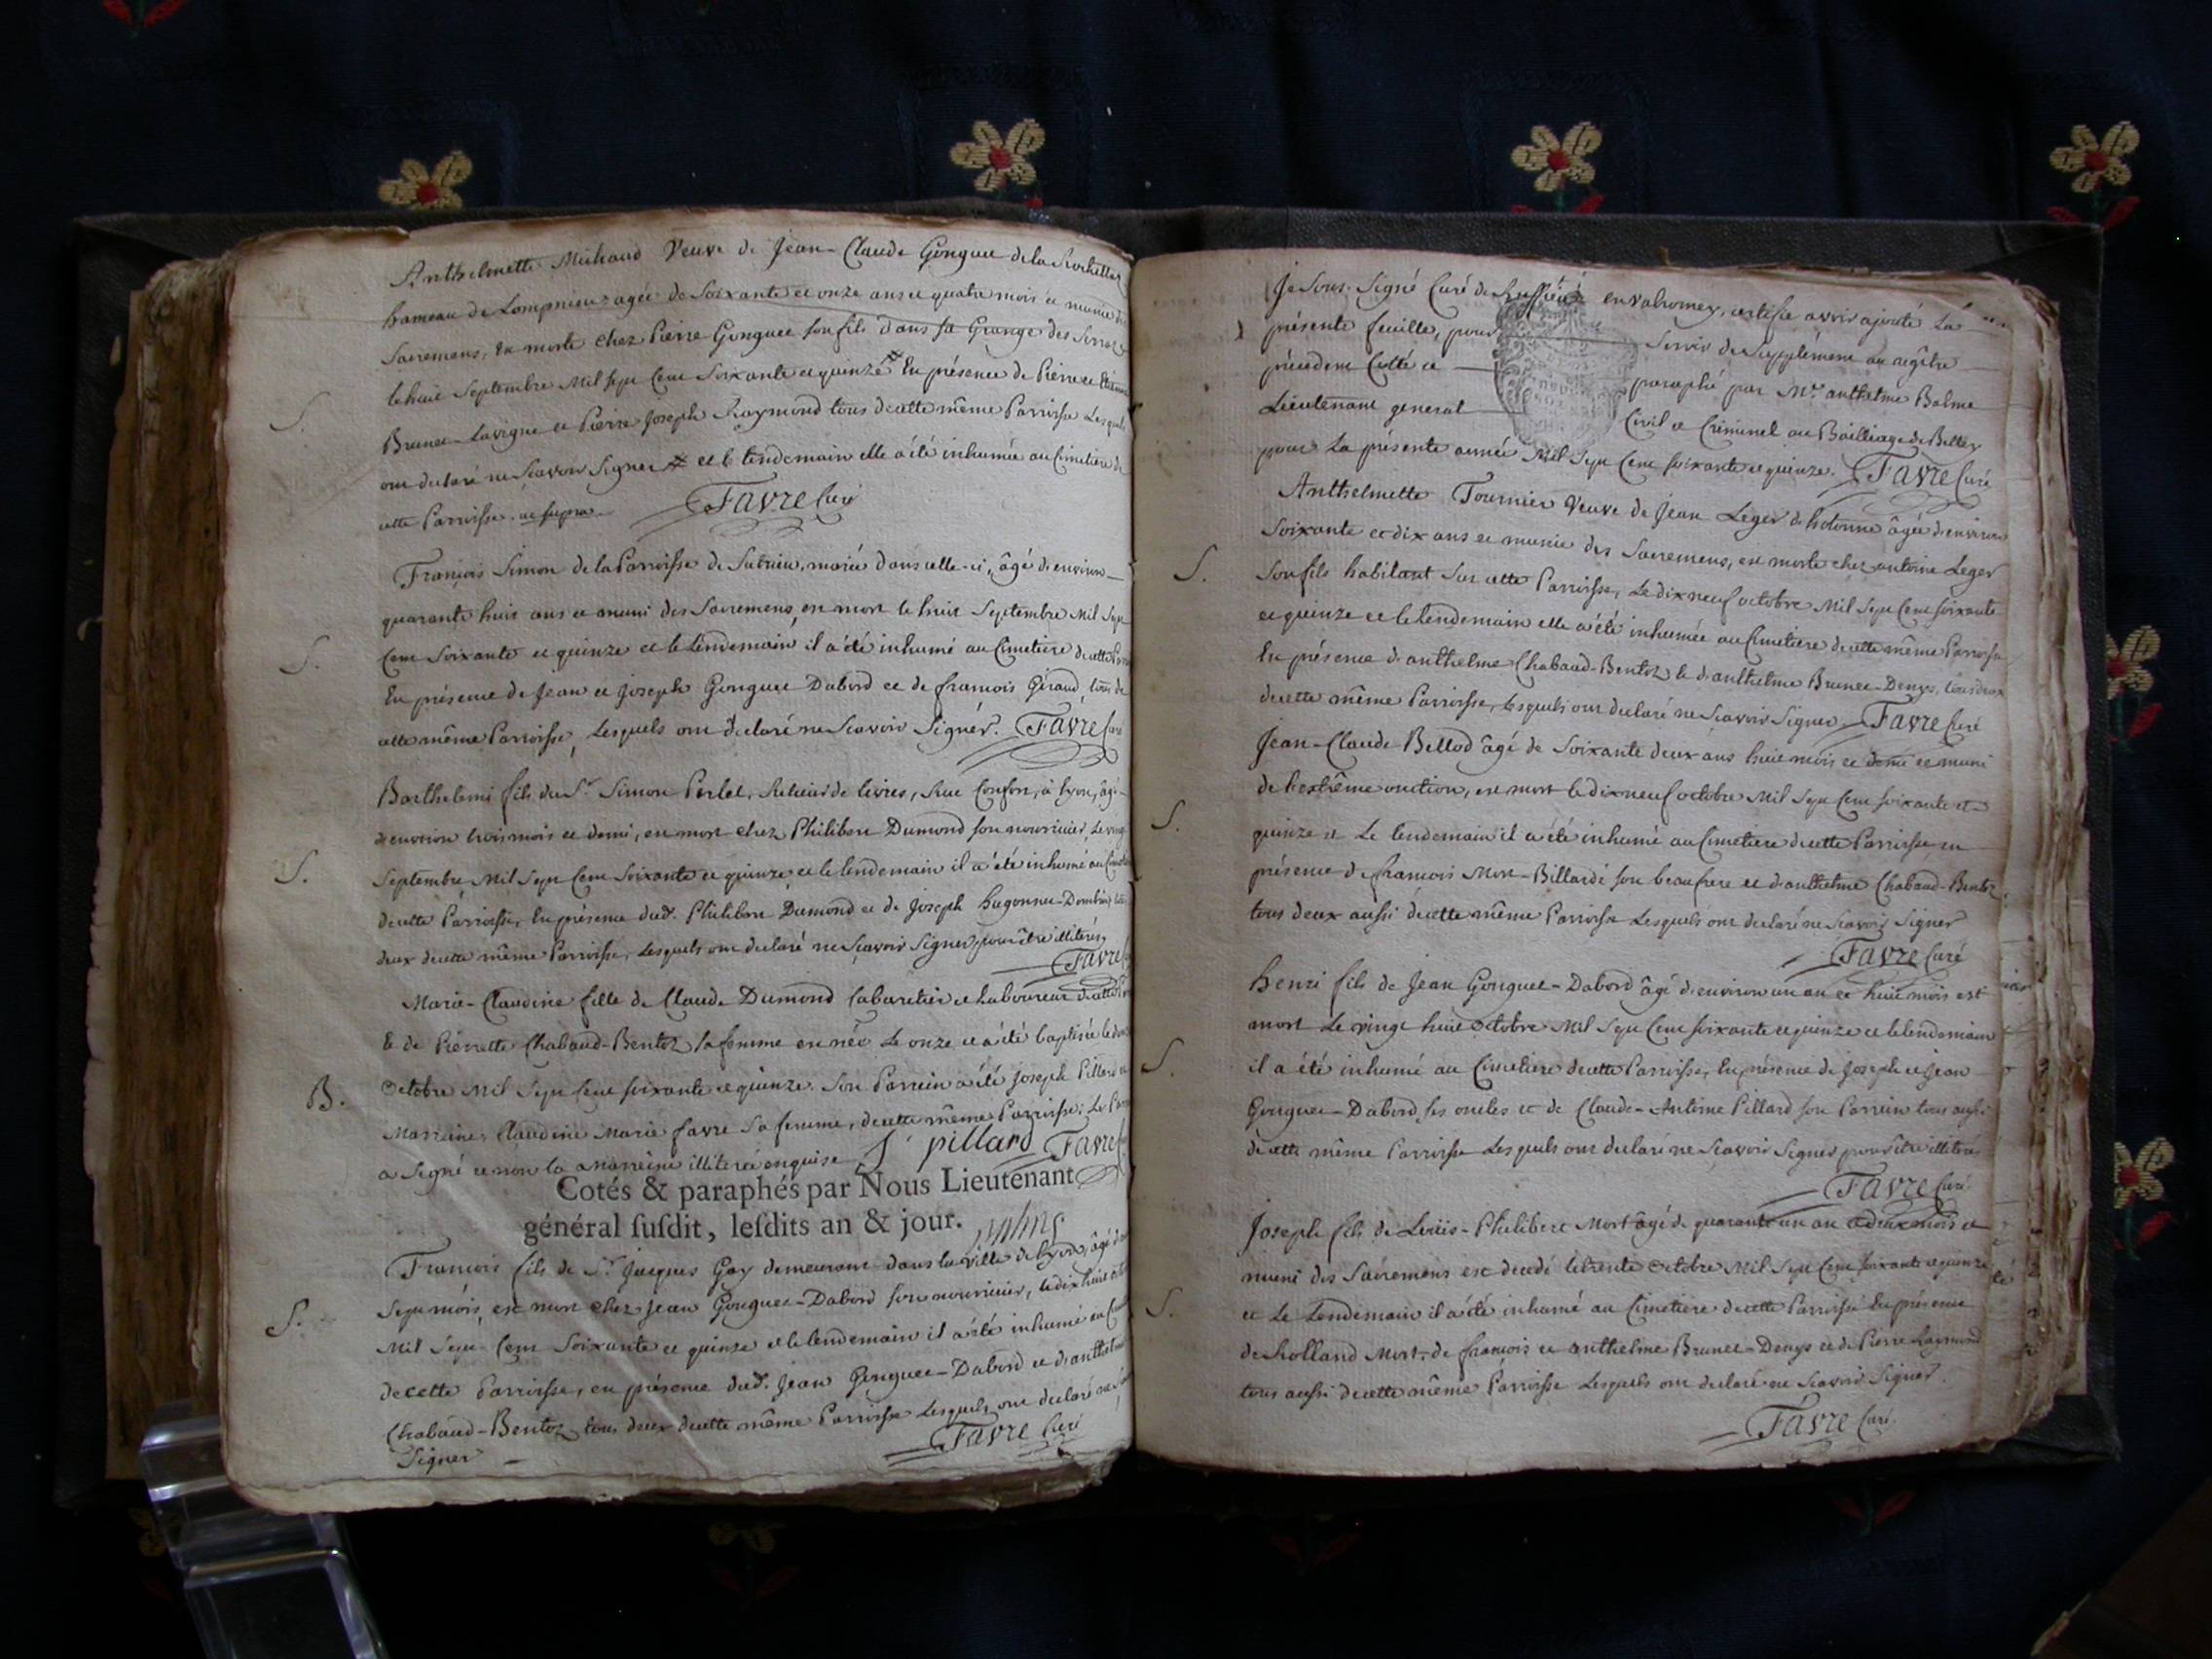 Anthelmette Michaud Veuve de Jean-Claude Gonguet de la Rochette
hameau de Lompnieu agée de Soixante et onze ans et quatre mois et munie des
Sacremens, est morte chez Pierre Gonguet son fils dans sa Grange des
le huit Septembre Mil sept Cent Soixante et quinze # En présence de Pierre et
Brunet-Lavigne et Pierre Joseph Raymond tous de cette même Parroisse Lesquels
ont declaré ne Scavoir Signer # et le lendemain elle a été inhumée au Cimetiere de
cette Parroisse. ut supra
Favre Curé
S.
François Simon de la Parroisse de Sutrieu, marié dans celle-ci, âgé d'environ
quarante huit ans et muni des Sacremens, est mort le huit Septembre Mil Sept
Cent Soixante et quinze et le lendemain il a été inhumé au Cimetiere de cette
En présence de Jean et Joseph Gonguet Dabord et de françois Géraud tous de
cette même Parroisse, Lesquels ont declaré ne Scavoir Signer. Favre Curé
S.
Barthelemi fils du Sr. Simon Perlet, Relieur de livres, Rue Confort, à Lyon, âgé
d'environ trois mois et demi, est mort chez Philibert Dumond son nourricier, Le vingt
Septembre Mil Sept Cent Soixante et quinze et le lendemain il a été inhumé au
de cette Parroisse, En présence dud. Philibert Dumond et de Joseph hugonnet-Dombin
deux de cette même Parroisse, Lesquels ont declaré ne Scavoir Signer pour être illiterés
Favre
S.
Marie-Claudine fille de Claude Dumond Cabaretier et Laboureur de cette
Et de Pierrette Chabaud-Bentoz sa femme est née Le onze et a été baptisée le
Octobre Mil Sept Cent soixante et quinze. Son Parrein a été Joseph Pillard
Marreine, Claudine Marie favre Sa femme, de cette même Parroisse: Le
a Signé et non la Marreine illiterée enquise J pillard Favre
B.
Cotés & paraphés par Nous Lieutenant
général susdit, lesdits an & jour.
François fils de Sr. Jacques Gay demeurant dans la ville de Lyon, âgé de
Sept mois, est mort chez Jean Gonguet-Dabord son nourricier, le dix huit
Mil Sept Cent Soixante et quinze et le lendemain il a été inhumé au
de cette Parroisse, en présence dud. Jean Gonguet-Dabord et d'anthelme
Chabaud-Bentoz tous deux de cette même Parroisse Lesquels ont declaré ne
Signer
Favre Curé
S.
Je Sous-Signé Curé de Ruffieu en valromey, certifie avoir ajouté La
présente feuille, pour Servir de Supplément au regître
précedent Cotté et paraphé par Mr. anthelme Balme
Lieutenant general Civil et Criminel au Bailliage de Belley
pour La présente année Mil Sept Cent soixante et quinze. Favre Curé
Anthelmette Tournier Veuve de Jean Leger d'hotonne âgée d'environ
Soixante et dix ans et munie des Sacremens, est morte chez antoine Leger
Son fils habitant Sur cette Parroisse, Le dix neuf octobre Mil Sept Cent soixante
et quinze et le lendemain elle a été inhumée au Cimetiere de cette même Parroisse
En présence d'anthelme Chabaud-Bentoz & d'anthelme Brunet-Denys, tous deux
de cette même Parroisse, lesquels ont declaré ne Scavoir Signer Favre Curé
S.
Jean-Claude Bellod âgé de Soixante deux ans huit mois et demi et muni
de l'extrême onction, est mort le dix neuf octobre Mil Sept Cent soixante et
quinze et Le lendemain il a été inhumé au Cimetiere de cette Parroisse en
présence de françois Mort-Billardé son beaufrere et d'anthelme Chabaud-Bentoz
tous deux aussi de cette même Parroisse Lesquels ont declaré ne Scavoir Signer
Favre Curé
S.
henri fils de Jean Gonguet-Dabord âgé d'environ un an et huit mois est
mort Le vingt huit Octobre Mil Sept Cent soixante et quinze et le lendemain
il a été inhumé au Cimetiere de cette Parroisse, En présence de Joseph et Jean
Gonguet-Dabord, ses oncles et de Claude-Antoine Pillard son Parrein tous aussi
de cette même Parroisse Lesquels ont declaré ne Scavoir Signer pour être illiterés
Favre Curé
S.
Joseph fils de Louis-Philibert Mort âgé de quarante un an et deux mois et
muni des Sacremens est decedé le trente Octobre Mil Sept Cent soixante et quinze
et Le Lendemain il a été inhumé au Cimetiere de cette Parroisse En présence
de Rolland Mort, de françois et anthelme Brunet-Denys et de Pierre Raymond
tous aussi de cette même Parroisse Lesquels ont declaré ne Scavoir Signer.
Favre Curé
S.